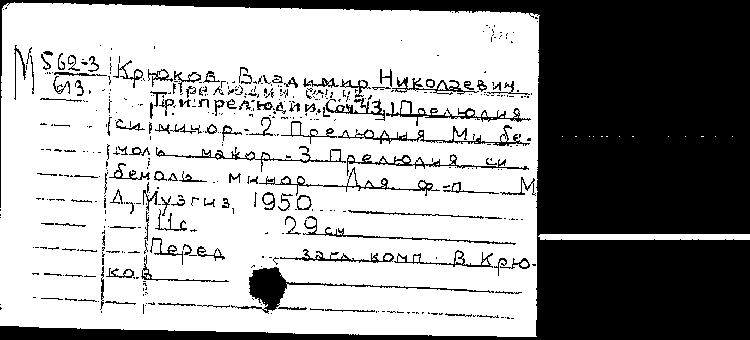 М 562-3
613.
Крюков Владимир Николаевич.
Прелюдии. соч. 42
Три прелюдии. Соч. 43, 1 Прелюдия
си минор - 2 Прелюдия Ми бе-
моль мажор - 3 Прелюдия си
бемоль минор Для ф-п М
Л., Музгиз, 1950
11с. 29 см
Перед загл. комп. В. Крю-
ков